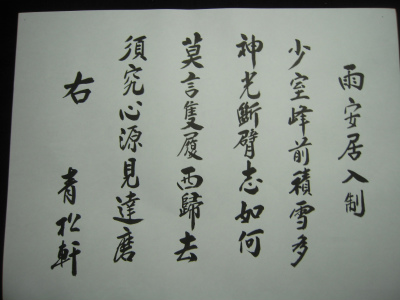 雨安居入制
少室峰前積雪多
神光斷臂志如何
莫言隻履西歸去
須究心源見達磨
右 青松軒